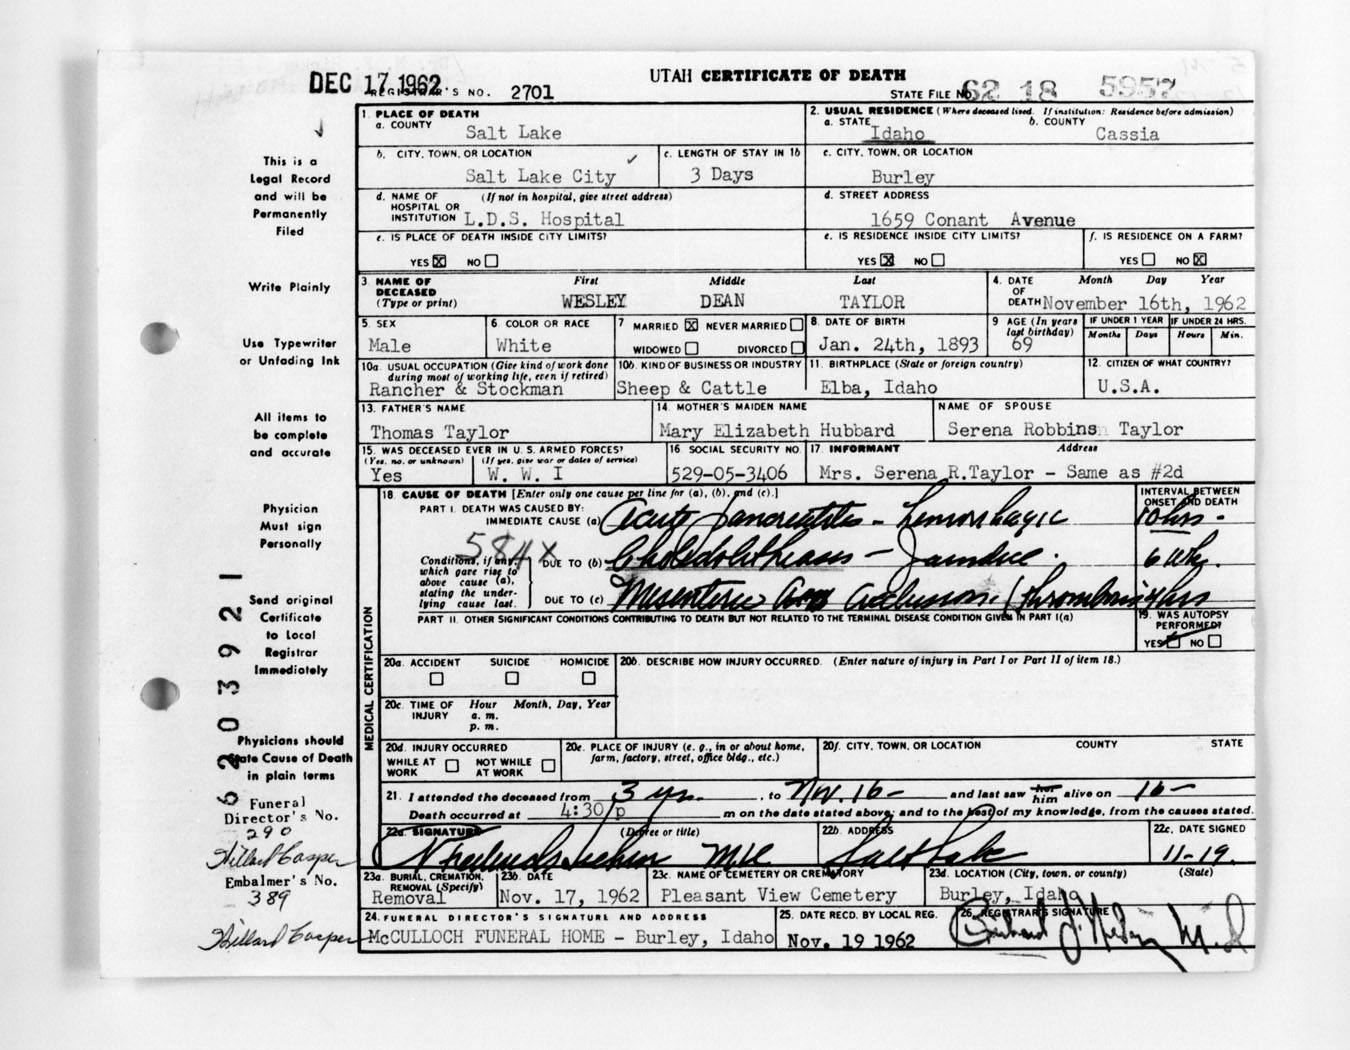 DEC 17 1962
UTAH CERTIFICATE OF DEATH
REGISTRAR'S NO. 2701
STATE FILE NO. 62 18 5957
This is a
Legal Record
and will be
Permanently
Filed
Write Plainly
Use Typewriter
or Unfading Ink
All items to
be complete
and accurate
Physician
Must sign
Personally
Send original
Certificate
to Local
Registrar
Immediately
Physicians should
State Cause of Death
in plain terms
Funeral
Director's No.
290
Hillard Casper
Embalmer's No.
389
Hillard Casper
6203921
1. PLACE OF DEATH
a. COUNTY Salt Lake
2. USUAL RESIDENCE (Where deceased lived. If institution: Residence before admission)
a. STATE Idaho b. COUNTY Cassia
b. CITY, TOWN, OR LOCATION Salt Lake City
c. LENGTH OF STAY IN 1b 3 Days
c. CITY, TOWN, OR LOCATION Burley
d. NAME OF HOSPITAL OR INSTITUTION (If not in hospital, give street address) L.D.S. Hospital
d. STREET ADDRESS 1659 Conant Avenue
e. IS PLACE OF DEATH INSIDE CITY LIMITS? YES X NO
e. IS RESIDENCE INSIDE CITY LIMITS? YES X NO
f. IS RESIDENCE ON A FARM? YES NO X
3. NAME OF DECEASED (Type or print) First Middle Last
WESLEY DEAN TAYLOR
4. DATE OF DEATH Month Day Year
November 16th, 1962
5. SEX Male
6. COLOR OR RACE White
7 MARRIED X NEVER MARRIED WIDOWED DIVORCED
8. DATE OF BIRTH Jan. 24th, 1893
9 AGE (In years last birthday) 69
IF UNDER 1 YEAR Months Days
IF UNDER 24 HRS. Hours Min.
10a. USUAL OCCUPATION (Give kind of work done during most of working life, even if retired) Rancher & Stockman
10b. KIND OF BUSINESS OR INDUSTRY Sheep & Cattle
11. BIRTHPLACE (State or foreign country) Elba, Idaho
12. CITIZEN OF WHAT COUNTRY? U.S.A.
13. FATHER'S NAME Thomas Taylor
14. MOTHER'S MAIDEN NAME Mary Elizabeth Hubbard
NAME OF SPOUSE Serena Robbins Taylor
15. WAS DECEASED EVER IN U. S. ARMED FORCES?
(Yes, no, or unknown) Yes (If yes, give war or dates of service) W. W. I
16. SOCIAL SECURITY NO. 529-05-3406
17. INFORMANT Address
Mrs. Serena R.Taylor - Same as #2d
18. CAUSE OF DEATH [Enter only one cause per line for (a), (b), and (c).]
INTERVAL BETWEEN ONSET AND DEATH
PART I. DEATH WAS CAUSED BY:
IMMEDIATE CAUSE (a) Acute Pancreatitis - hemorrhagic 10 hrs -
584X
Conditions, if any, which gave rise to above cause (a), stating the underlying cause last.
DUE TO (b) Choledolithiasis - Jaundice. 6 wks.
DUE TO (c) Mesenteric Occlusion. (thrombosis hrs
PART II. OTHER SIGNIFICANT CONDITIONS CONTRIBUTING TO DEATH BUT NOT RELATED TO THE TERMINAL DISEASE CONDITION GIVEN IN PART I(a)
19. WAS AUTOPSY PERFORMED? YES NO
MEDICAL CERTIFICATION
20a. ACCIDENT SUICIDE HOMICIDE
20b. DESCRIBE HOW INJURY OCCURRED. (Enter nature of injury in Part I or Part II of item 18.)
20c. TIME OF INJURY Hour Month, Day, Year
a. m.
p. m.
20d. INJURY OCCURRED
WHILE AT WORK NOT WHILE AT WORK
20e. PLACE OF INJURY (e. g., in or about home, farm, factory, street, office bldg., etc.)
20f. CITY, TOWN, OR LOCATION COUNTY STATE
21. I attended the deceased from 3 yrs. , to Nov. 16 - and last saw her him alive on 16 -
Death occurred at 4:30 p m on the date stated above; and to the best of my knowledge, from the causes stated.
22a. SIGNATURE (Degree or title)
22b. ADDRESS Salt Lake
22c. DATE SIGNED 11-19.
23a. BURIAL, CREMATION, REMOVAL (Specify) Removal
23b. DATE Nov. 17, 1962
23c. NAME OF CEMETERY OR CREMATORY Pleasant View Cemetery
23d. LOCATION (City, town, or county) (State)
Burley, Idaho
24. FUNERAL DIRECTOR'S SIGNATURE AND ADDRESS
McCULLOCH FUNERAL HOME - Burley, Idaho
25. DATE RECD. BY LOCAL REG. Nov. 19 1962
26. REGISTRAR'S SIGNATURE